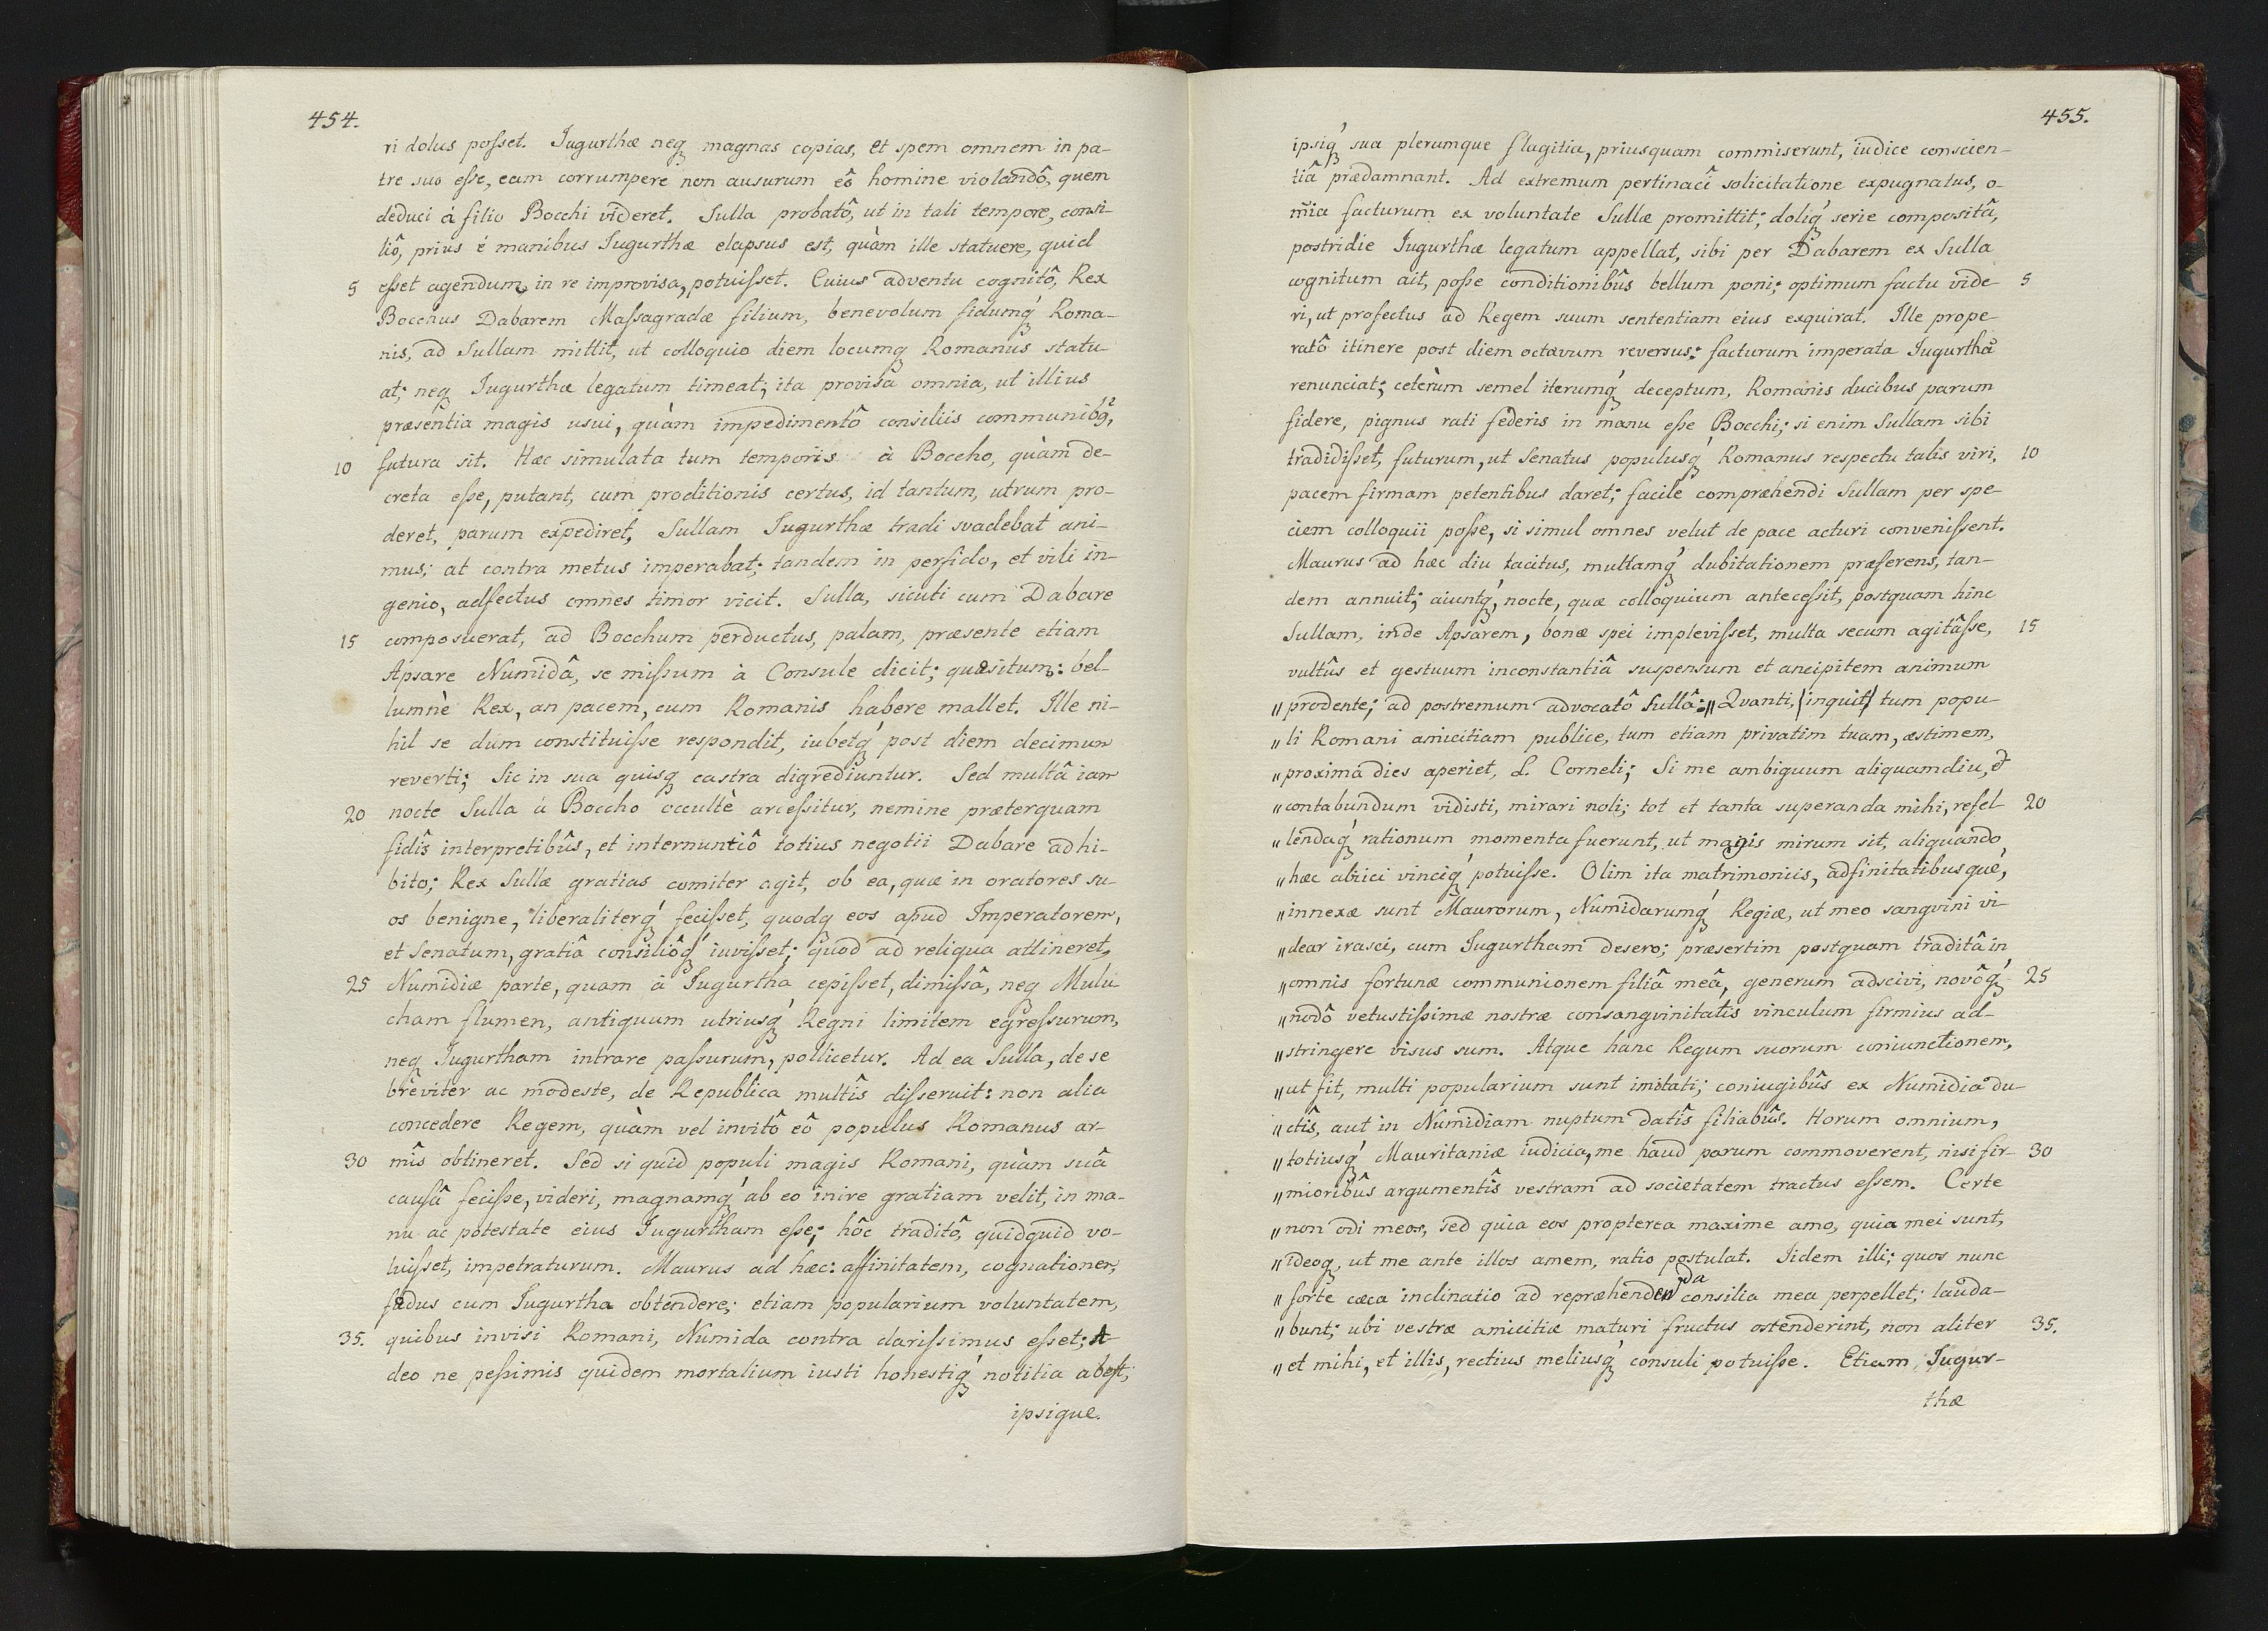 454.
ri dolus poſset. Iugurthæ neq́ magnas copias, et spem omnem in pa-
tre suo eſse, eam corrumpere non ausurum eô homine violandô, quem
deduci à filio Bocchi videret. Sulla probatô, ut in tali tempore, consi-
liô, prius è manibus Iugurthæ elapsus est, quàm ille statuere, quid
5 eſset agendum, in re improvisa, potuiſset. Cuius adventu cognitô, Rex
Bocchus Dabarem Maſsagradæ filium, benevolum fidumq́ Roma-
nis, ad Sullam mittit, ut colloquio diem locumq́ Romanus statu-
at; neq́ Iugurthæ legatum timeat; ita provisa omnia, ut illius
præsentia magis usui, quàm impedimentô consiliis communibq̃,
10 futura sit. Hæc simulata tum temporis à Boccho, quàm de-
creta eſse, putant, cum proditionis certus, id tantum, utrum pro-
deret, parum expediret, Sullam Iugurthæ tradi svadebat ani-
mus; at contra metus imperabat; tandem in perfido, et vili in-
genio, adfectus omnes timor vicit. Sulla, sicuti cum Dabare
15 composuerat, ad Bocchum perductus, palam, præsente etiam
Apsare Numidâ, se miſsum à Consule dicit; quæsitum: bel-
lumnè Rex, an pacem, cum Romanis habere mallet. Ille ni-
hil se dum constituiſse respondit, iubetq́ post diem decimum
reverti; Sic in sua quisq́ castra digrediuntur. Sed multâ iam
20 nocte Sulla à Boccho occultè arceſsitur, nemine præterquam
fidîs interpretibûs, et internuntiô totius negotii Dabare adhi-
bito; Rex Sullæ gratias comiter agit, ob ea, quæ in oratores su-
os benigne, liberaliterq́ feciſset, quodq́ eos apud Imperatorem,
et Senatum, gratiâ consiliôq́ iuviſset; quod ad reliqua attineret,
25 Numidiæ parte, quam à Iugurtha cepiſset, dimiſsâ, neq́ Mulu-
cham flumen, antiquum utriusq́ Regni limitem egreſsurum,
neq́ Iugurtham intrare paſsurum, pollicetur. Ad ea Sulla, de se
breviter ac modeste, de Republica multîs diſseruit: non alia
concedere Regem, quàm vel invitô eô populus Romanus ar-
30 mîs obtineret. Sed si quid populi magis Romani, quàm suâ
causâ feciſse, videri, magnamq́ ab eo inire gratiam velit, in ma-
nu ac potestate eius Iugurtham eſse; hôc traditô, quidquid vo-
luiſset, impetraturum. Maurus ad hæc: affinitatem, cognationem,
fædus cum Iugurtha obtendere; etiam popularium voluntatem,
35. quibus invisi Romani, Numida contra clariſsimus eſset; A-
deo ne peſsimis quidem mortalium iusti honestiq́ notitia abest;
ipsique.
455.
ipsiq́ sua plerumque flagitia, priusquam commiserunt, iudice conscien-
tiâ prædamnant. Ad extremum pertinacî solicitatione expugnatus, o-
m̃ia facturum ex voluntate Sullæ promittit; doliq́ serie compositâ,
postridie Iugurthæ legatum appellat, sibi per Dabarem ex Sulla
cognitum ait, poſse conditionibûs bellum poni; optimum factu vide- 5
ri, ut profectus ad Regem suum sententiam eius exquirat. Ille prope-
ratô itinere post diem octavum reversus: facturum imperata Iugurthã
renunciat; ceterùm semel iterumq́ deceptum, Romanis ducibus parum
fidere, pignus rati fæderis in manu eſse Bocchi; si enim Sullam sibi
tradidiſset, futurum, ut Senatus populusq́ Romanus respectu talis viri, 10
pacem firmam petentibus daret; facile compræhendi Sullam per spe-
ciem colloquii poſse, si simul omnes velut de pace acturi conveniſsent.
Maurus ad hæc diu tacitus, multamq́ dubitationem præferens, tan-
dem annuit; aiuntq́, nocte, quæ colloquium anteceſsit, postquam hinc
Sullam, inde Apsarem, bonæ spei impleviſset, multa secum agitâſse, 15
vultûs et gestuum inconstantiâ suspensum et ancipitem animum
„ prodente; ad postremum advocatô Sullâ: „ Quanti, (inquit) tum popu-
„ li Romani amicitiam publice, tum etiam privatim tuam, æstimem,
„ proxima dies aperiet, L. Corneli; Si me ambiguum aliquamdiu, &
„ contabundum vidisti, mirari noli; tot et tanta superanda mihi, refel- 20
„ lendaq́ rationum momenta fuerunt, ut magis mirum sit, aliquando,
„ hæc abiici vinciq́ potuiſse. Olim ita matrimoniis, adfinitatibusque,
„ innexæ sunt Maurorum, Numidarumq́ Regiæ, ut meo sangvini vi-
„ dear irasci, cum Iugurtham desero; præsertim postquam traditâ in
„ omnis fortunæ communionem filiâ meâ, generum adscivi, novôq́ 25
„ nodô vetustiſsimæ nostræ consangvinitatis vinculum firmius ad-
„ stringere visus sum. Atque hanc Regum suorum coniunctionem,
„ ut fit, multi popularium sunt imitati; coniugibûs ex Numidia du-
„ ctîs, aut in Numidiam nuptum datîs filiabûs. Horum omnium,
„ totiusq́ Mauritaniæ iudicia, me haud parum commoverent, nisi fir- 30
„ mioribûs argumentîs vestram ad societatem tractus eſsem. Certe
„ non odi meos, sed quia eos propterea maxime amo, quia mei sunt,
„ ideoq́, ut me ante illos amem, ratio postulat. Iidem illi; quos nunc
„ forte cæca inclinatio ad repræhendenda consilia mea perpellet; lauda-
„ bunt; ubi vestræ amicitiæ maturi fructus ostenderint, non aliter 35.
„ et mihi, et illis, rectius meliusq́ consuli potuiſse. Etiam Iugur-
thæ